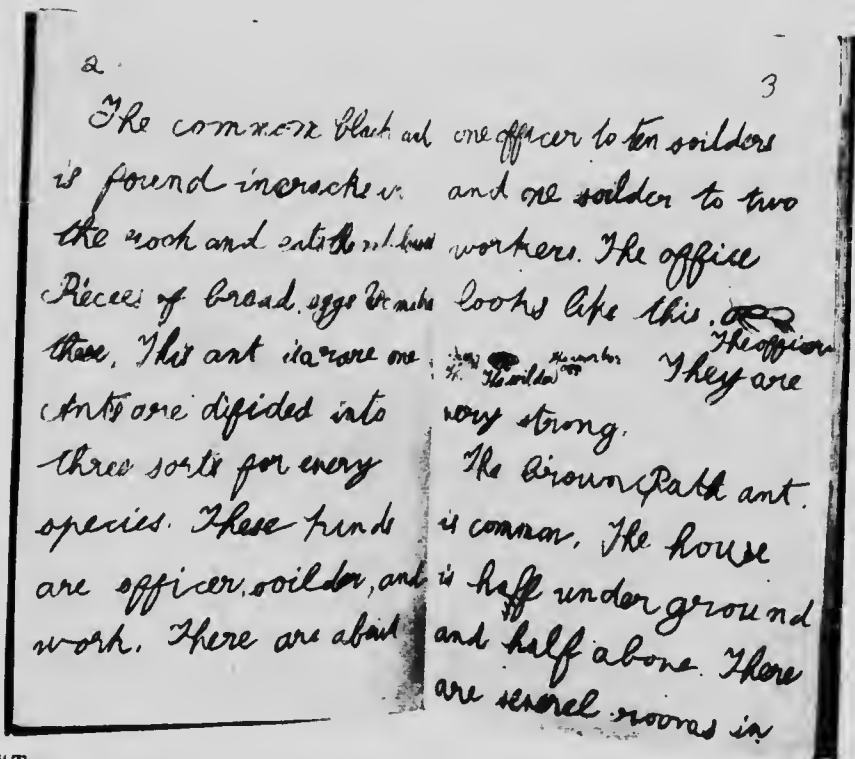 2
The common black ant
is found in cracks in
the rock and eats the
Pieces of bread, eggs
these. This ant is a rare one
Ants are difided into
three sorts for every
species. These kinds
are officer, soilder, and
work. There are about
3
one officer to ten soilders
and one soilder to two
workers. The office
looks like this.
The officer
The soilder
They are
very strong.
The Brown Path ant.
is common. The house
is half under ground
and half above. There
are several rooms in